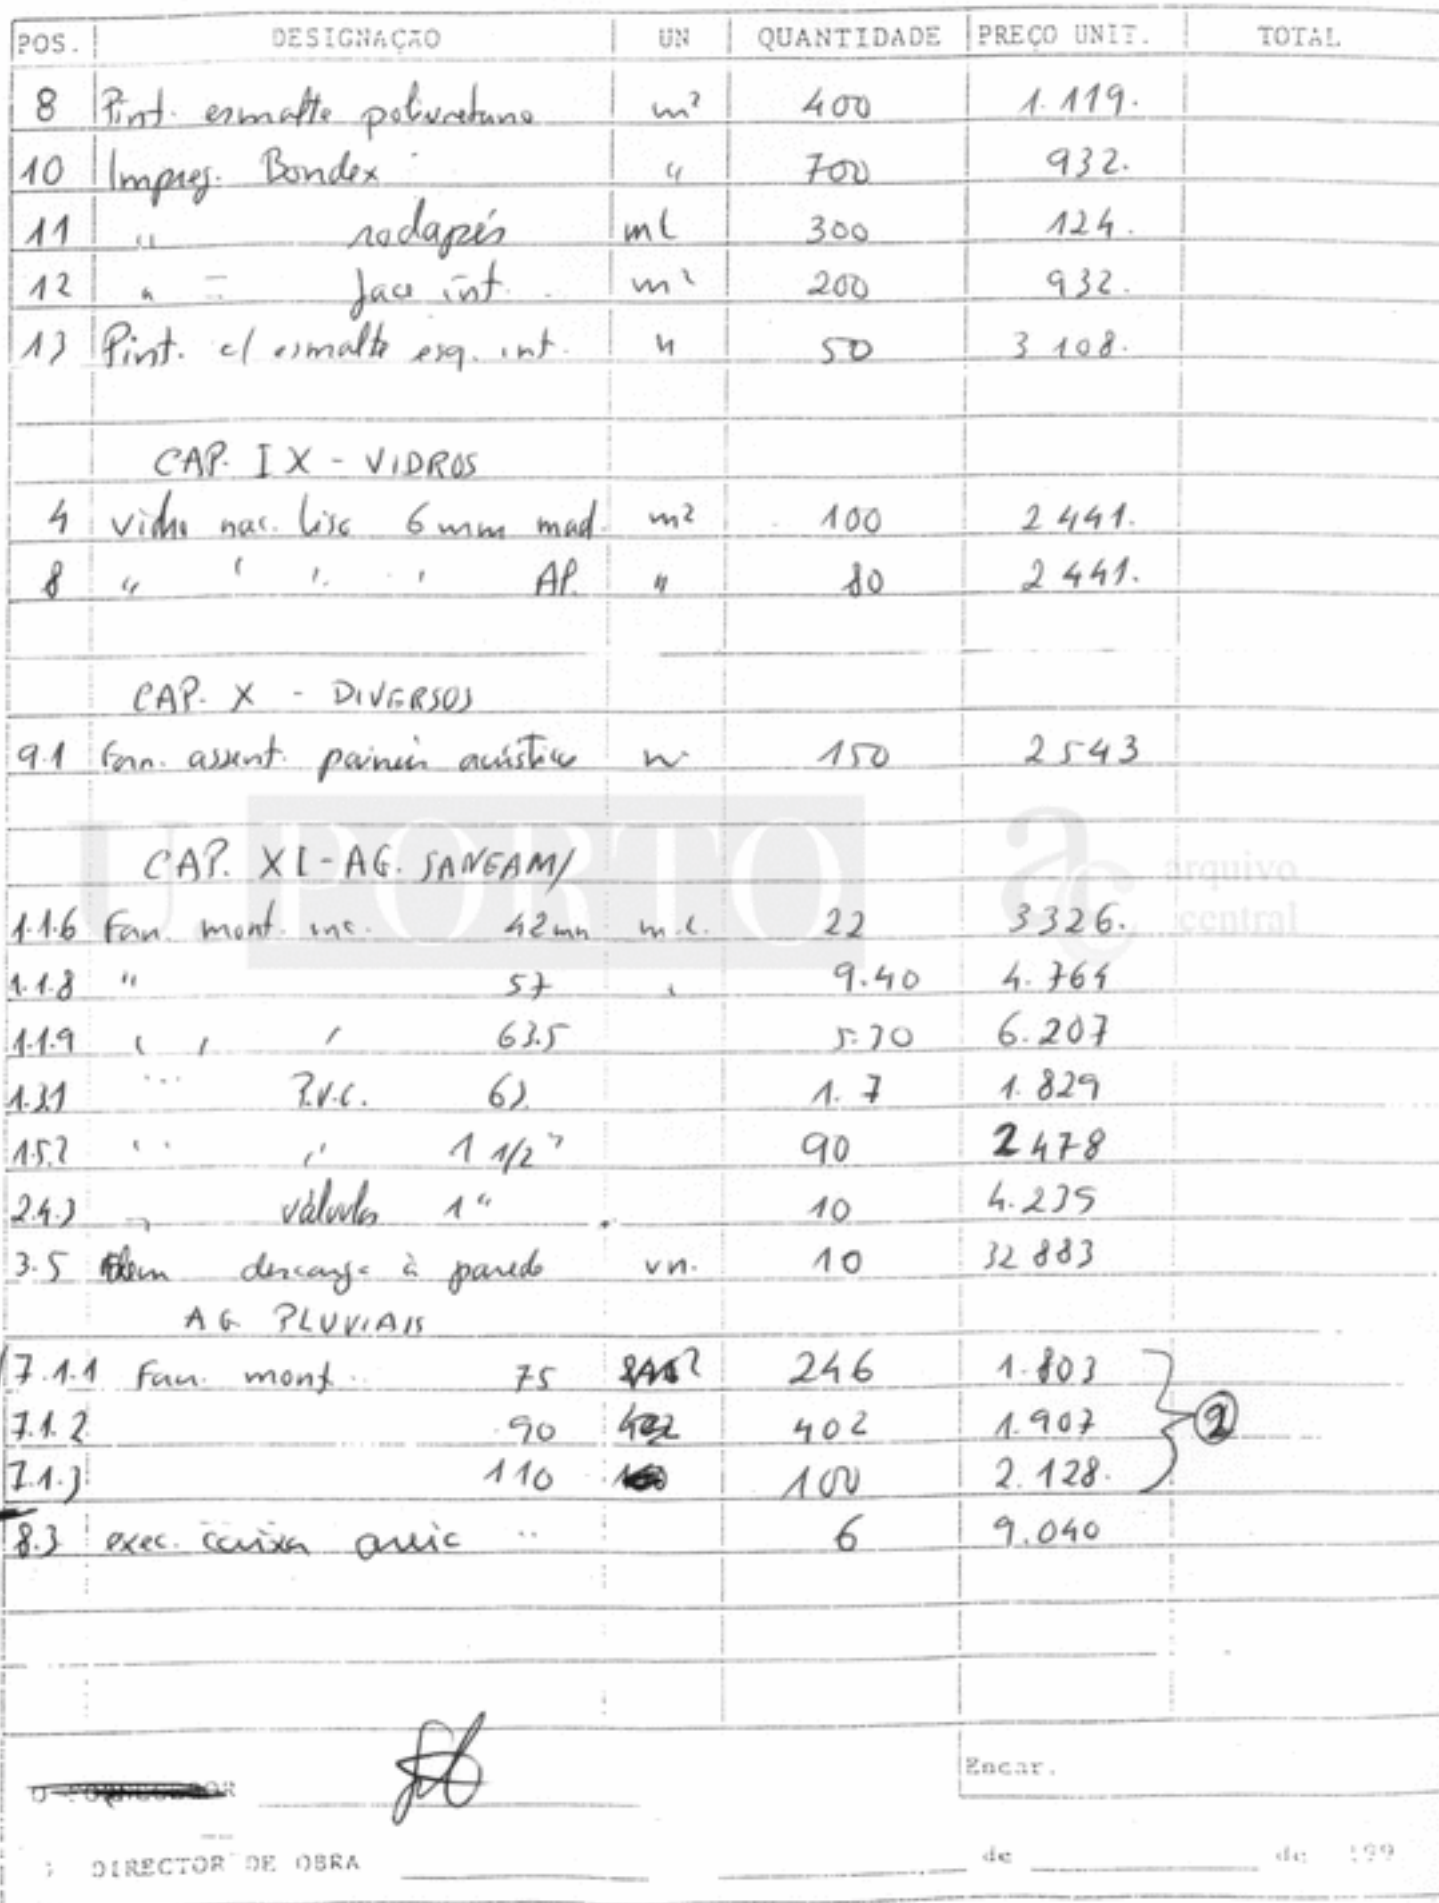 POS. DESIGNAÇÃO UN QUANTIDADE PREÇO UNIT. TOTAL
8 Pint. esmalte poliuretano m² 400 1.119.
10 Impreg. Bondex " 700 932.
11 " rodapés ml 300 124.
12 " = face int. m² 200 932.
13 Pint. c/ esmalte esq. int. " 50 3 108.
CAP. IX - VIDROS
4 vidro nac. liso 6 mm mad. m² 100 2 441.
8 " " " " AP. " 80 2 441.
CAP. X - DIVERSOS
9.1 Forn. assent. paineis acústico 150 2 543
CAP. XI - AG. SANEAM/
1.1.6 Forn. mont. inc. 42mm m.l. 22 3326.
1.1.8 " 57 9.40 4.764
1.1.9 " " " 63.5 5.70 6.207
1.3.1 " P.V.C. 63 1.7 1.829
1.5.2 " " 1 1/2" 90 2 478
2.4.3 " válvulas 1" 10 4.235
3.5 Idem descarga à parede un. 10 32 883
AG. PLUVIAIS
7.1.1 Forn. mont. 75 246 1.803
7.1.2 90 402 1.907 2
7.1.3 110 100 2.128.
8.3 exec. caixa areia 6 9.040
U. PORTO ac arquivo central
Encar.
DIRECTOR DE OBRA de de 199